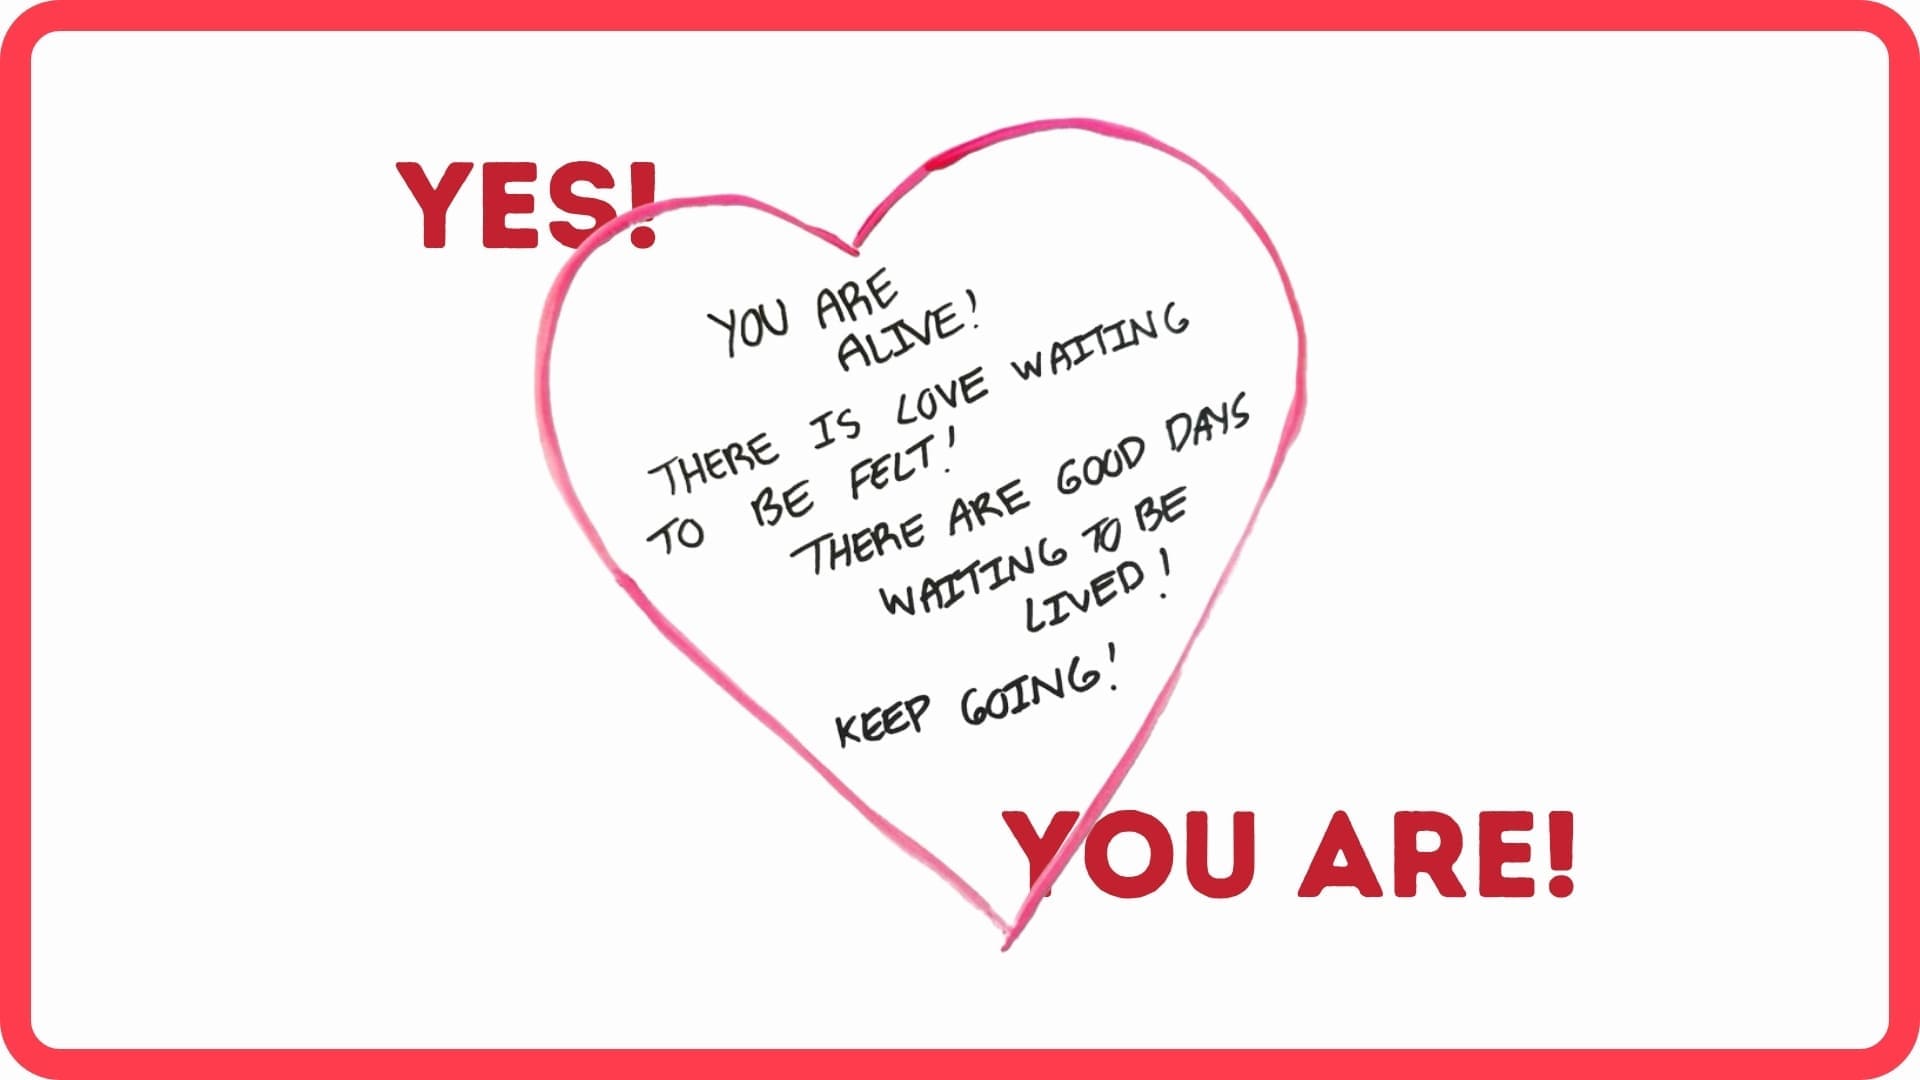 YES!
YOU ARE
ALIVE!
THERE IS LOVE WAITING
TO BE FELT!
THERE ARE GOOD DAYS
WAITING TO BE
LIVED!
KEEP GOING!
YOU ARE!